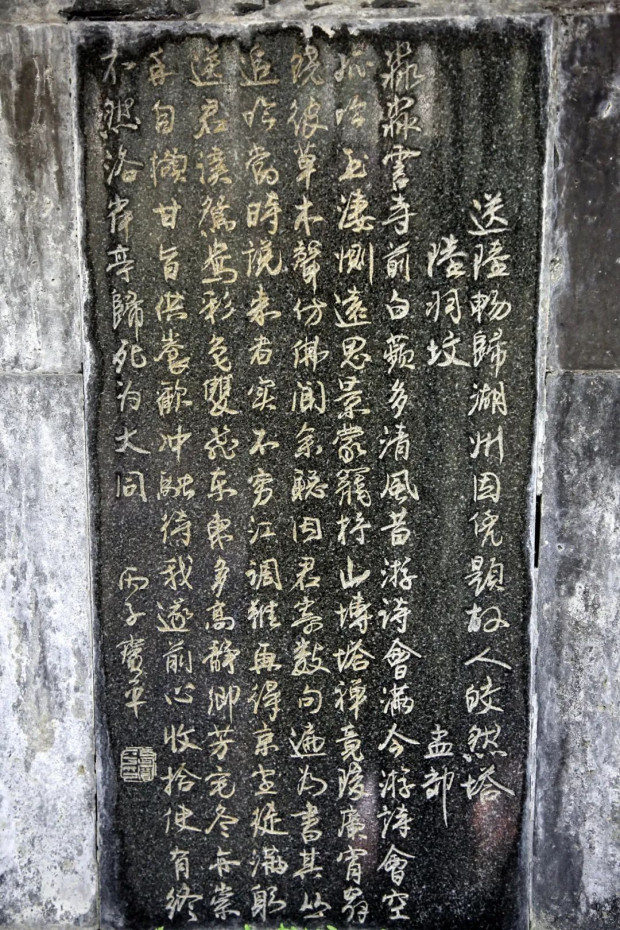 送陸暢歸湖州因憑題故人皎然塔
陸羽墳 孟郊
淼淼霅寺前白蘋多清風昔游詩會滿今游詩會空
孤吟玉淒惻遠思景蒙籠杼山塼塔禪竟陵廣宵翁
繞彼草木聲仿佛聞余聰因君寄數句遍為書其丛
追吟當時說來者實不窮江調難再得京塵徒滿躬
送君溪鴛鴦彩色雙飛东東多高靜鄉芳宅冬亦崇
手自擷甘旨供養歡冲融待我遂前心收拾使有終
不然洛岸亭歸死为大同 丙子